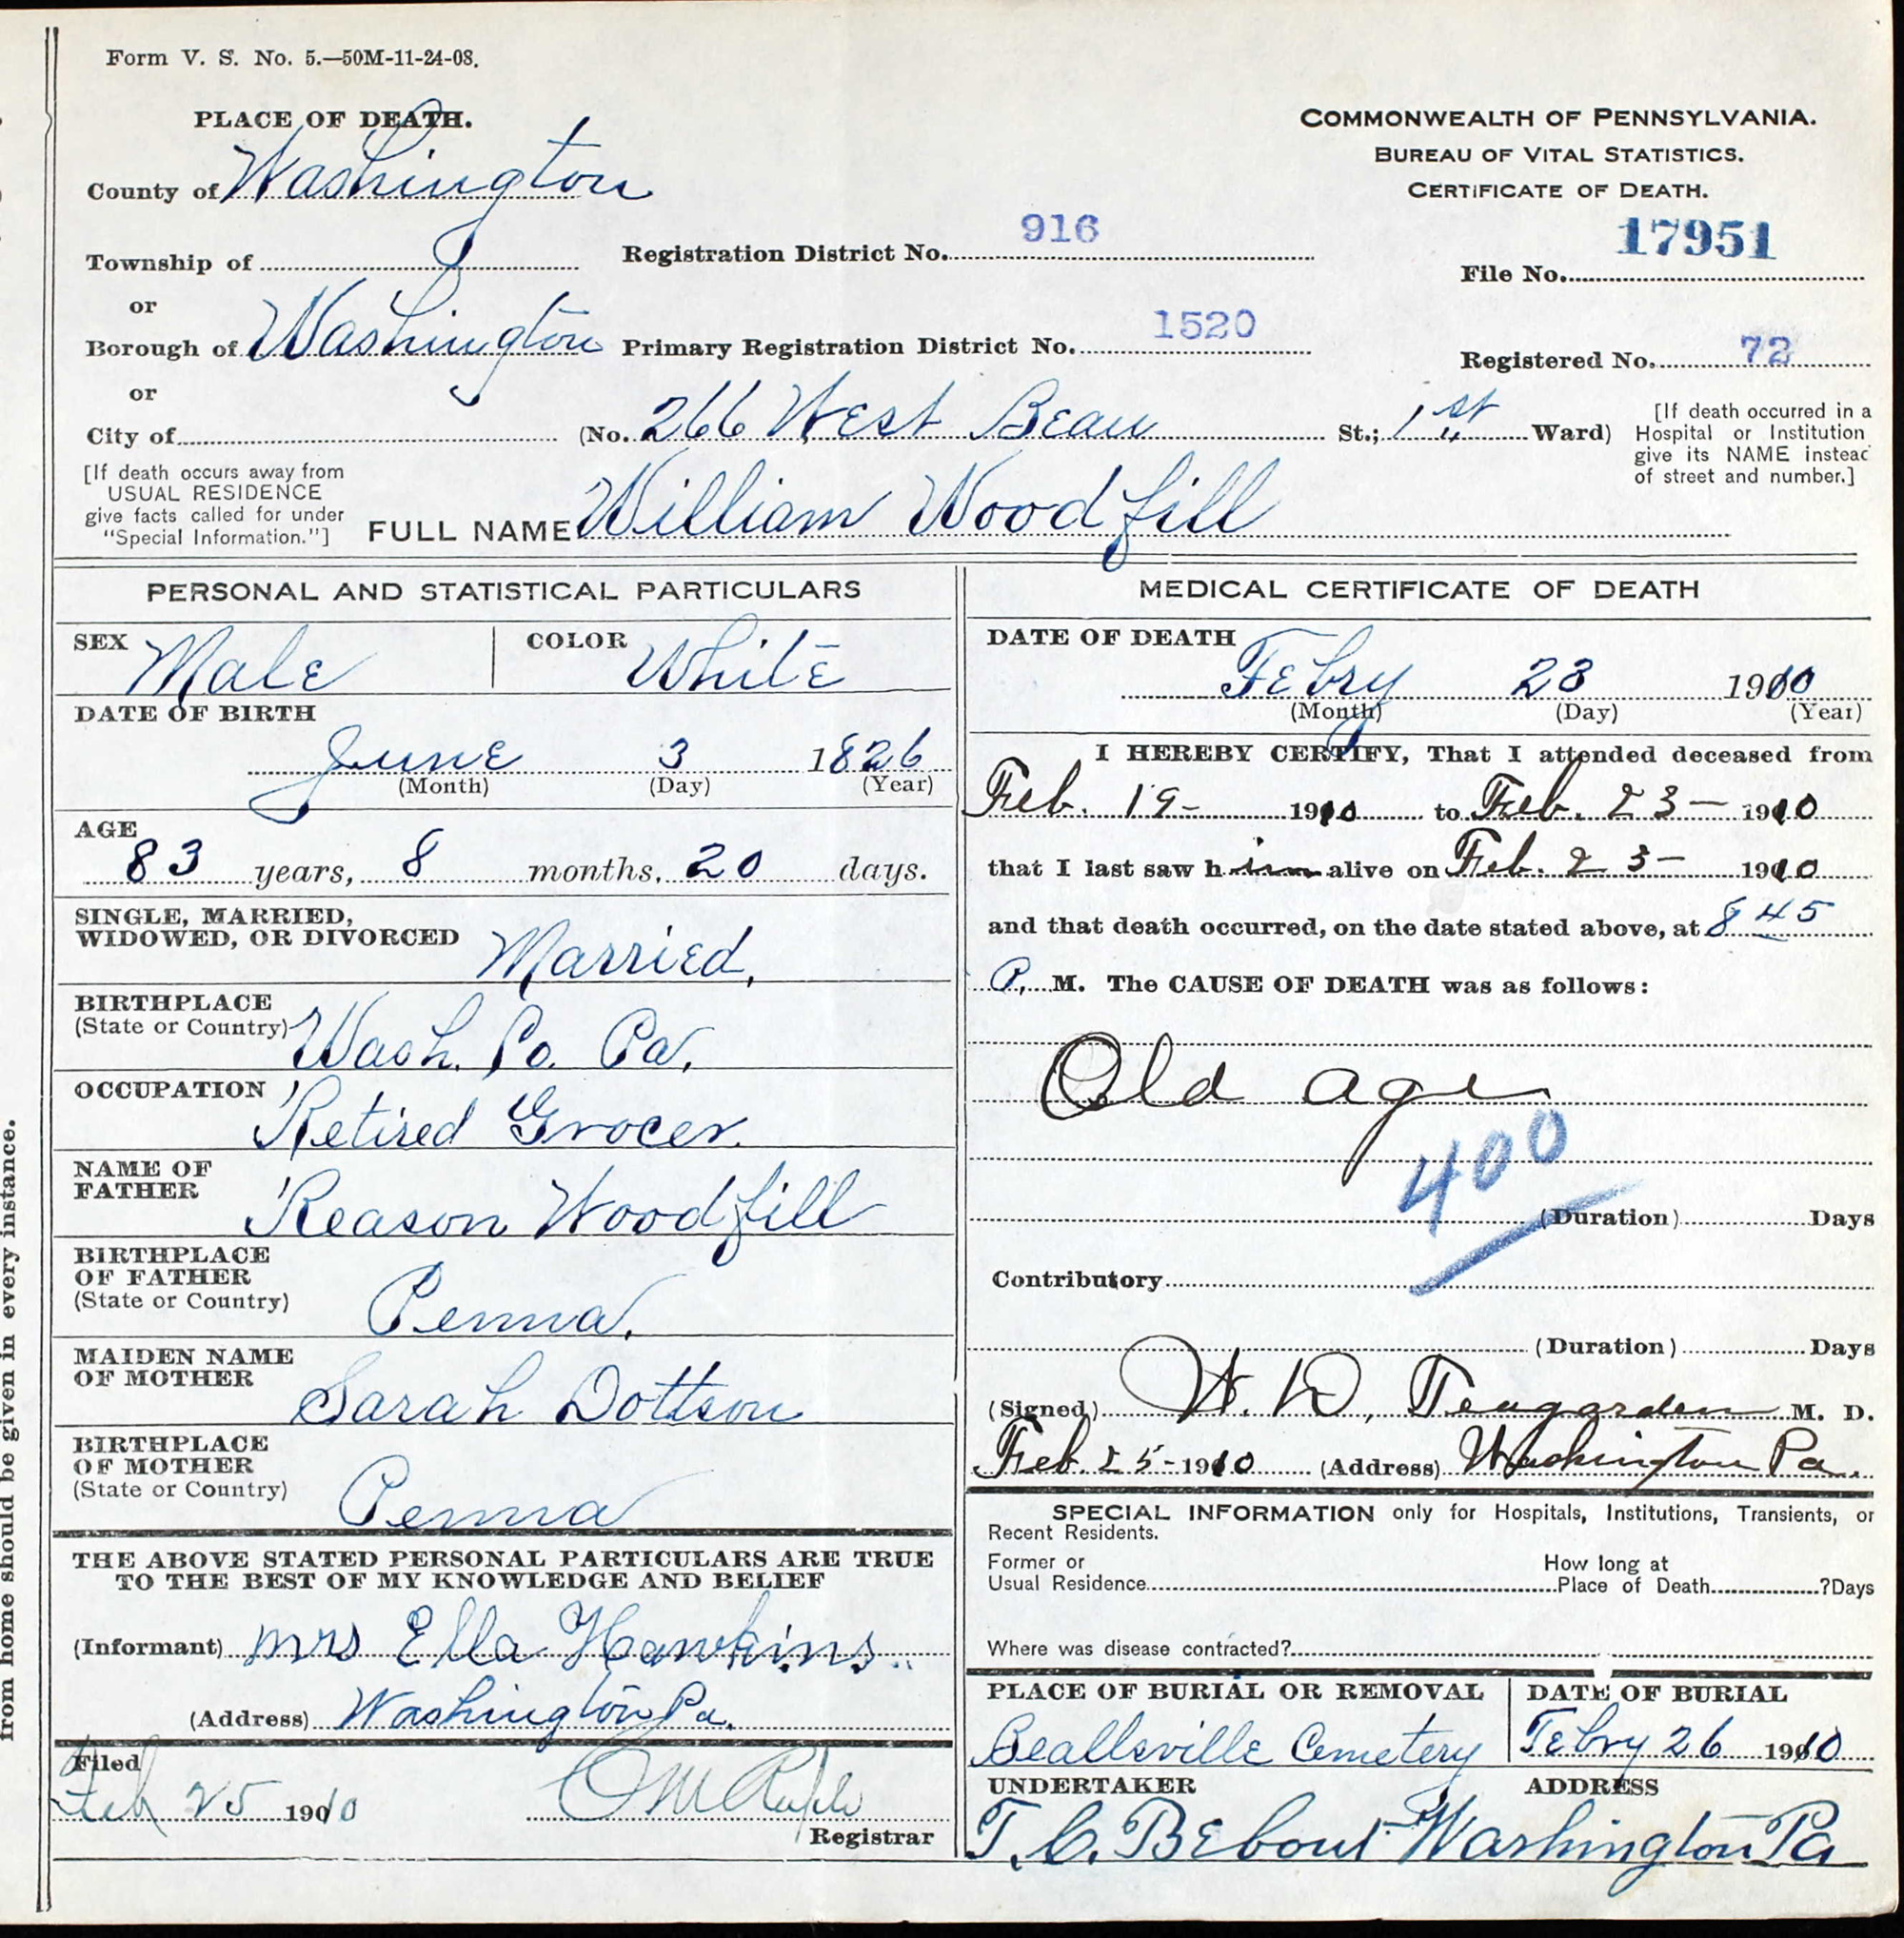 Form V. S. No. 5.—50M-11-24-08.
PLACE OF DEATH.
County of Washington
Township of
or
Borough of Washington
or
City of
[If death occurs away from
USUAL RESIDENCE
give facts called for under
"Special Information."]
COMMONWEALTH OF PENNSYLVANIA.
BUREAU OF VITAL STATISTICS.
CERTIFICATE OF DEATH.
Registration District No. 916
File No. 17951
Primary Registration District No. 1520
Registered No. 72
(No. 266 West Beau St.; 1st Ward)
[If death occurred in a
Hospital or Institution
give its NAME instead
of street and number.]
FULL NAME William Woodfill
PERSONAL AND STATISTICAL PARTICULARS
SEX Male
COLOR White
DATE OF BIRTH
June 3 1826
(Month) (Day) (Year)
AGE
83 years, 8 months, 20 days.
SINGLE, MARRIED,
WIDOWED, OR DIVORCED Married,
BIRTHPLACE
(State or Country) Wash. Co. Pa,
OCCUPATION
Retired Grocer.
NAME OF
FATHER
Reason Woodfill
BIRTHPLACE
OF FATHER
(State or Country)
Penna,
MAIDEN NAME
OF MOTHER
Sarah Dottson
BIRTHPLACE
OF MOTHER
(State or Country)
Penna
THE ABOVE STATED PERSONAL PARTICULARS ARE TRUE
TO THE BEST OF MY KNOWLEDGE AND BELIEF
(Informant) Mrs Ella Hawkins.
(Address) Washington Pa.
Filed
Feb 25 1910
Registrar
MEDICAL CERTIFICATE OF DEATH
DATE OF DEATH
Febry 23 1910
(Month) (Day) (Year)
I HEREBY CERTIFY, That I attended deceased from
Feb. 19- 1910 to Feb. 23- 1910
that I last saw him alive on Feb. 23- 1910
and that death occurred, on the date stated above, at 8 45
P. M. The CAUSE OF DEATH was as follows:
Old age
400
(Duration) Days
Contributory
(Duration) Days
(Signed) W. D. Teagarden M. D.
Feb. 25-1910 (Address) Washington Pa.
SPECIAL INFORMATION only for Hospitals, Institutions, Transients, or
Recent Residents.
Former or
Usual Residence
How long at
Place of Death ?Days
Where was disease contracted?
PLACE OF BURIAL OR REMOVAL
Beallsville Cemetery
DATE OF BURIAL
Febry 26 1910
UNDERTAKER ADDRESS
T. C. Bebout Washington Pa
from home should be given in every instance.